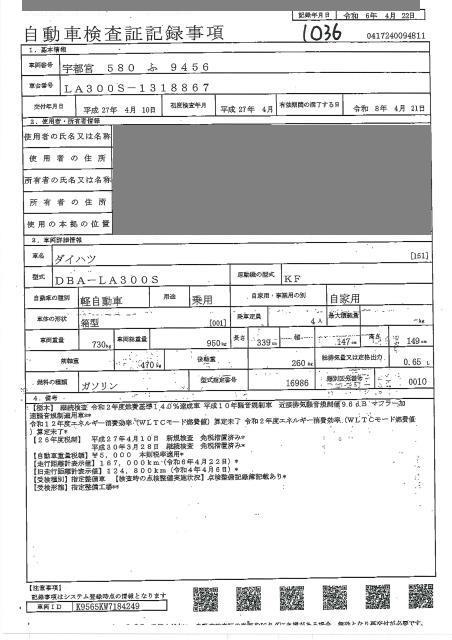 記録年月日 令和 6年 4月 22日
自動車検査証記録事項
1036
0417240094811
1．基本情報
車両番号 宇都宮 580 ふ 9456
車台番号 LA300S-1318867
交付年月日 平成 27年 4月 10日 初度検査年月 平成 27年 4月 有効期間の満了する日 令和 8年 4月 21日
2．使用者・所有者情報
使用者の氏名又は名称
使用者の住所
所有者の氏名又は名称
所有者の住所
使用の本拠の位置
3．車両詳細情報
車名 ダイハツ [151]
型式 DBA-LA300S 原動機の型式 KF
自動車の種別 軽自動車 用途 乗用 自家用・事業用の別 自家用
車体の形状 箱型 [001] 乗車定員 4人 最大積載量 -kg
車両重量 730kg 車両総重量 950kg 長さ 339cm 幅 147cm 高さ 149cm
前軸重 470kg 後軸重 260kg 総排気量又は定格出力 0.65 L
燃料の種類 ガソリン 型式指定番号 16986 類別区分番号 0010
4．備考
【栃木】 継続検査 令和2年度燃費基準140%達成車 平成10年騒音規制車 近接排気騒音規制値96dB マフラー加
速騒音規制適用車**
令和12年度エネルギー消費効率（WLTCモード燃費値）算定未了 令和2年度エネルギー消費効率（WLTCモード燃費値
）算定未了*
【26年度税制】 平成27年4月10日 新規検査 免税措置済み*
平成30年3月28日 継続検査 免税措置済み*
【自動車重量税額】¥5,000 本則税率適用*
【走行距離計表示値】167,000km（令和6年4月22日）*
【旧走行距離計表示値】124,800km（令和4年4月6日）*
【受検種別】指定整備車 【検査時の点検整備実施状況】点検整備記録簿記載あり*
【受検形態】指定整備工場**
【注意事項】
記録事項はシステム登録時点の情報となります
車両ID K9565KW7184249